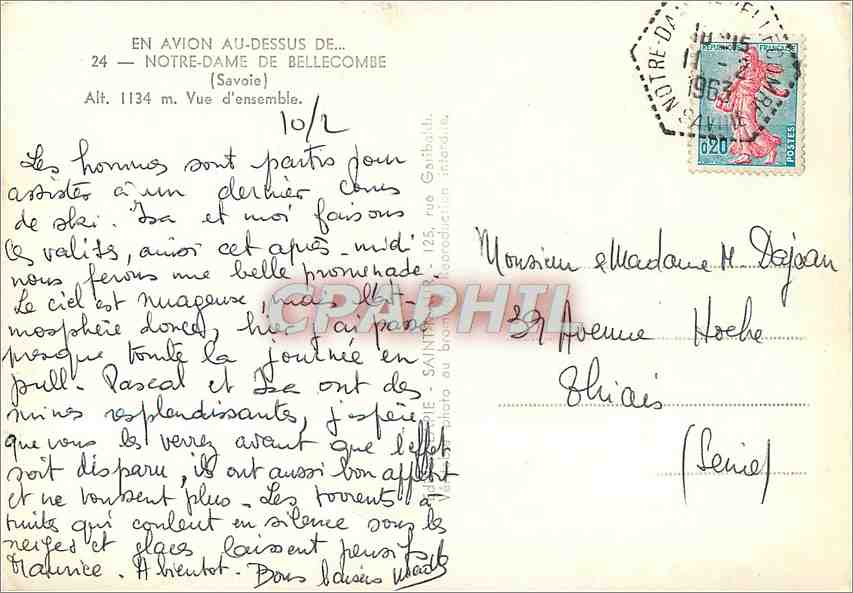 EN AVION AU-DESSUS DE...
24 — NOTRE-DAME DE BELLECOMBE
(Savoie)
Alt. 1134 m. Vue d'ensemble.
10/2
Les hommes sont partis pour
assister à un dernier cours
de ski. Isa et moi faisons
les valises, aussi cet après-midi
nous ferons une belle promenade.
Le ciel est nuageuse, mais l'at-
mosphère douce, hier j'ai passé
presque toute la journée en
pull. Pascal et Isa ont des
mines resplendissantes, j'espère
que vous les verrez avant que l'effet
soit disparu, ils ont aussi bon appétit
et ne toussent plus. Les torrents à
truites qui coulent en silence sous les
neiges et glaces laissent pensif
Maurice. A bientot. Bons baisers
125, rue Garibaldi.
reproduction interdite.
CPARHIL
NOTRE-DAME
10-15
11-2
1963
SAVOIE
REPUBLIQUE FRANÇAISE
0,20
POSTES
Monsieur & Madame M. Dajean
39 Avenue Hoche
Thiais
(Seine)